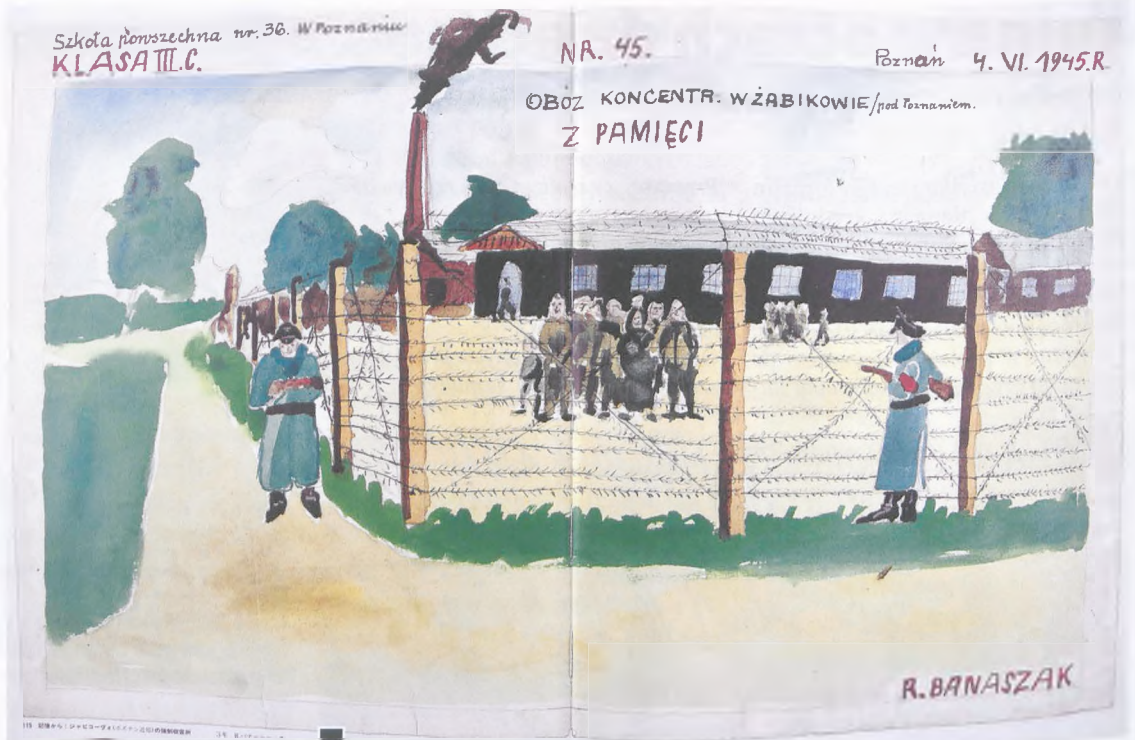 Szkoła powszechna nr. 36. W Poznaniu
KLASA III.C.
NR. 45.
Poznań 4. VI. 1945.R.
OBOZ KONCENTR. W ŻABIKOWIE/pod Poznaniem.
Z PAMIĘCI
R. BANASZAK